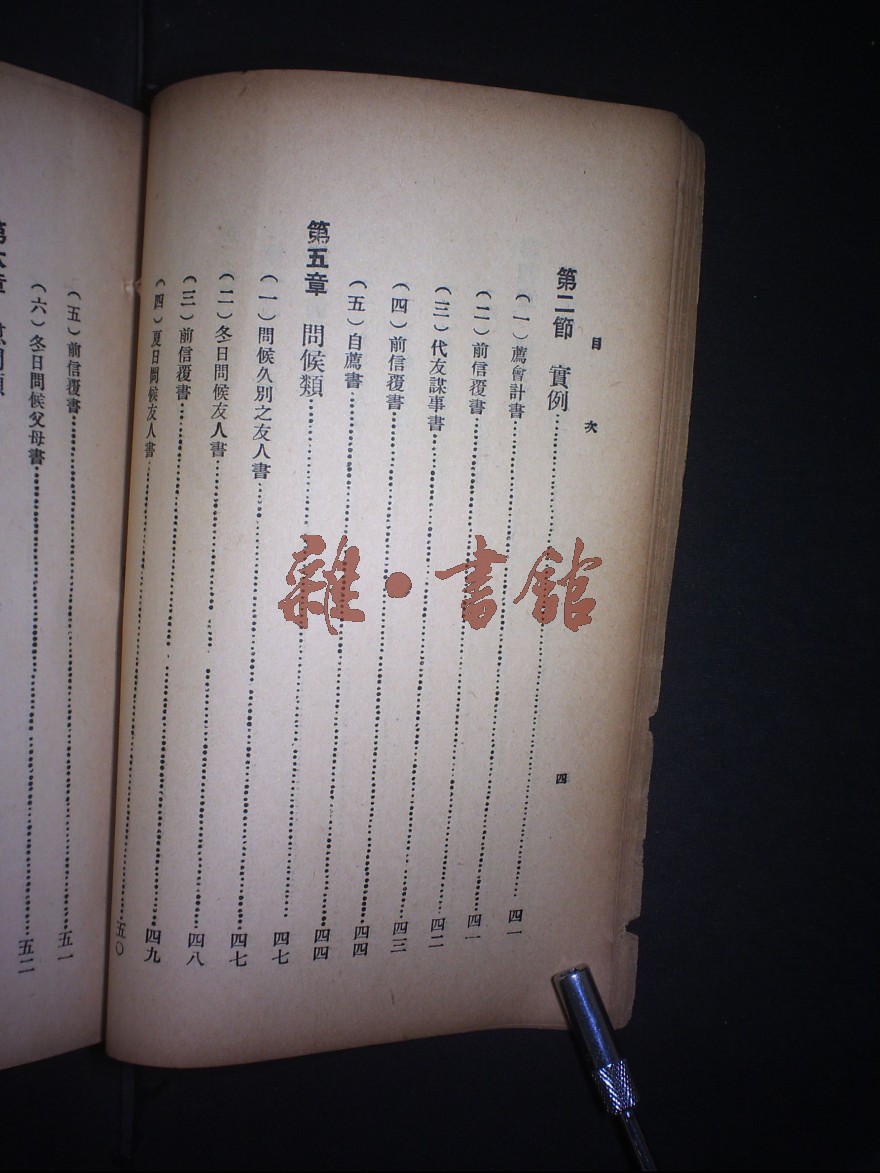 目次 四
第二節 實例……四一
（一）薦會計書……四一
（二）前信覆書……四二
（三）代友謀事書……四三
（四）前信覆書……四四
（五）自薦書……四四
第五章 問候類……四七
（一）問候久別之友人書……四七
（二）冬日問候友人書……四八
（三）前信覆書……四九
（四）夏日問候友人書……五〇
（五）前信覆書……五一
（六）冬日問候父母書……五二
雜·書館